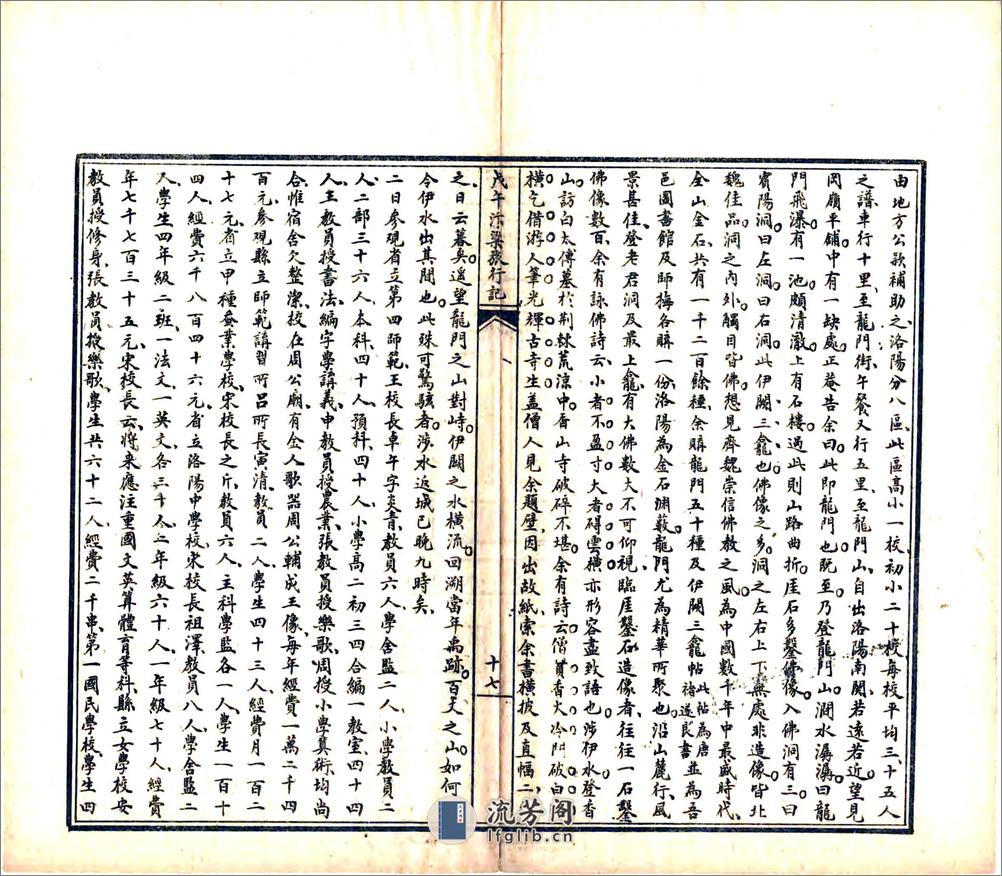 由地方公欵補助之洛陽分八區此區高小一校初小二十校每校平均三十五人
之譜車行十里至龍門街午餐又行五里至龍門山自出洛陽南關若遠若近望見
岡嶺平鋪中有一缺處正菴告余曰此即龍門也既至乃登龍門山澗水潺潺曰龍
門飛瀑有一池頗清澈上有石樓過此則山路曲折崖石多鑿佛像入佛洞有三曰
賓陽洞曰左洞曰右洞此伊闕三龕也佛像之多洞之左右上下無處非造像皆北
魏佳品洞之內外觸目皆佛想見齊魏崇信佛教之風為中國數千年中最盛時代
全山金石共有一千二百餘種余購龍門五十種及伊闕三龕帖此帖為唐褚遂良書並為吾
邑圖書館及師梅各購一份洛陽為金石淵藪龍門尤為精華所聚也沿山麓行風
景甚佳登老君洞及最上龕有大佛數大不可仰視臨崖鑿石造像者往往一石鑿
佛像數百余有詠佛詩云小者不盈寸大者碍雲橫亦形容盡致語也涉伊水登香
山訪白太傅墓於荆棘荒涼中香山寺破碎不堪余有詩云僧貧香火冷門破白
橫乞借游人筆光輝古寺生蓋僧人見余題壁因出故紙索余書橫披及直幅二
戊午汴梁旅行記
十七
之日云暮矣遥望龍門之山對峙伊闕之水橫流回溯當年禹跡百丈之山如何
令伊水出其間也此殊可驚駭者涉水返城已晚九時矣
二日參觀省立第四師範王校長卓午字炎青教員六人學舍監二人小學教員二
人二部三十六人本科四十人預科四十人小學高二初三四合編一教室四十四
人主教員授書法編字學講義申教員授農業張教員授樂歌周授小學算術均尚
合惟宿舍欠整潔校在周公廟有全人歌器周公輔成王像每年經費一萬二千四
百元參觀縣立師範講習所呂所長寅清教員二人學生四十三人經費月一百二
十七元省立甲種蚕業學校宋校長之斤教員六人主科學監各一人學生一百十
四人經費六千八百四十六元省立洛陽中學校宋校長祖澤教員八人學舍監二
人學生四年級二班一法文一英文各三十人二年級六十人一年級七十人經費
年七千七百三十五元宋校長云將來應注重國文英算體育等科縣立女學校安
教員授修身張教員授樂歌學生共六十二人經費二千串第一國民學校學生四
流芳阁
lfglib.cn